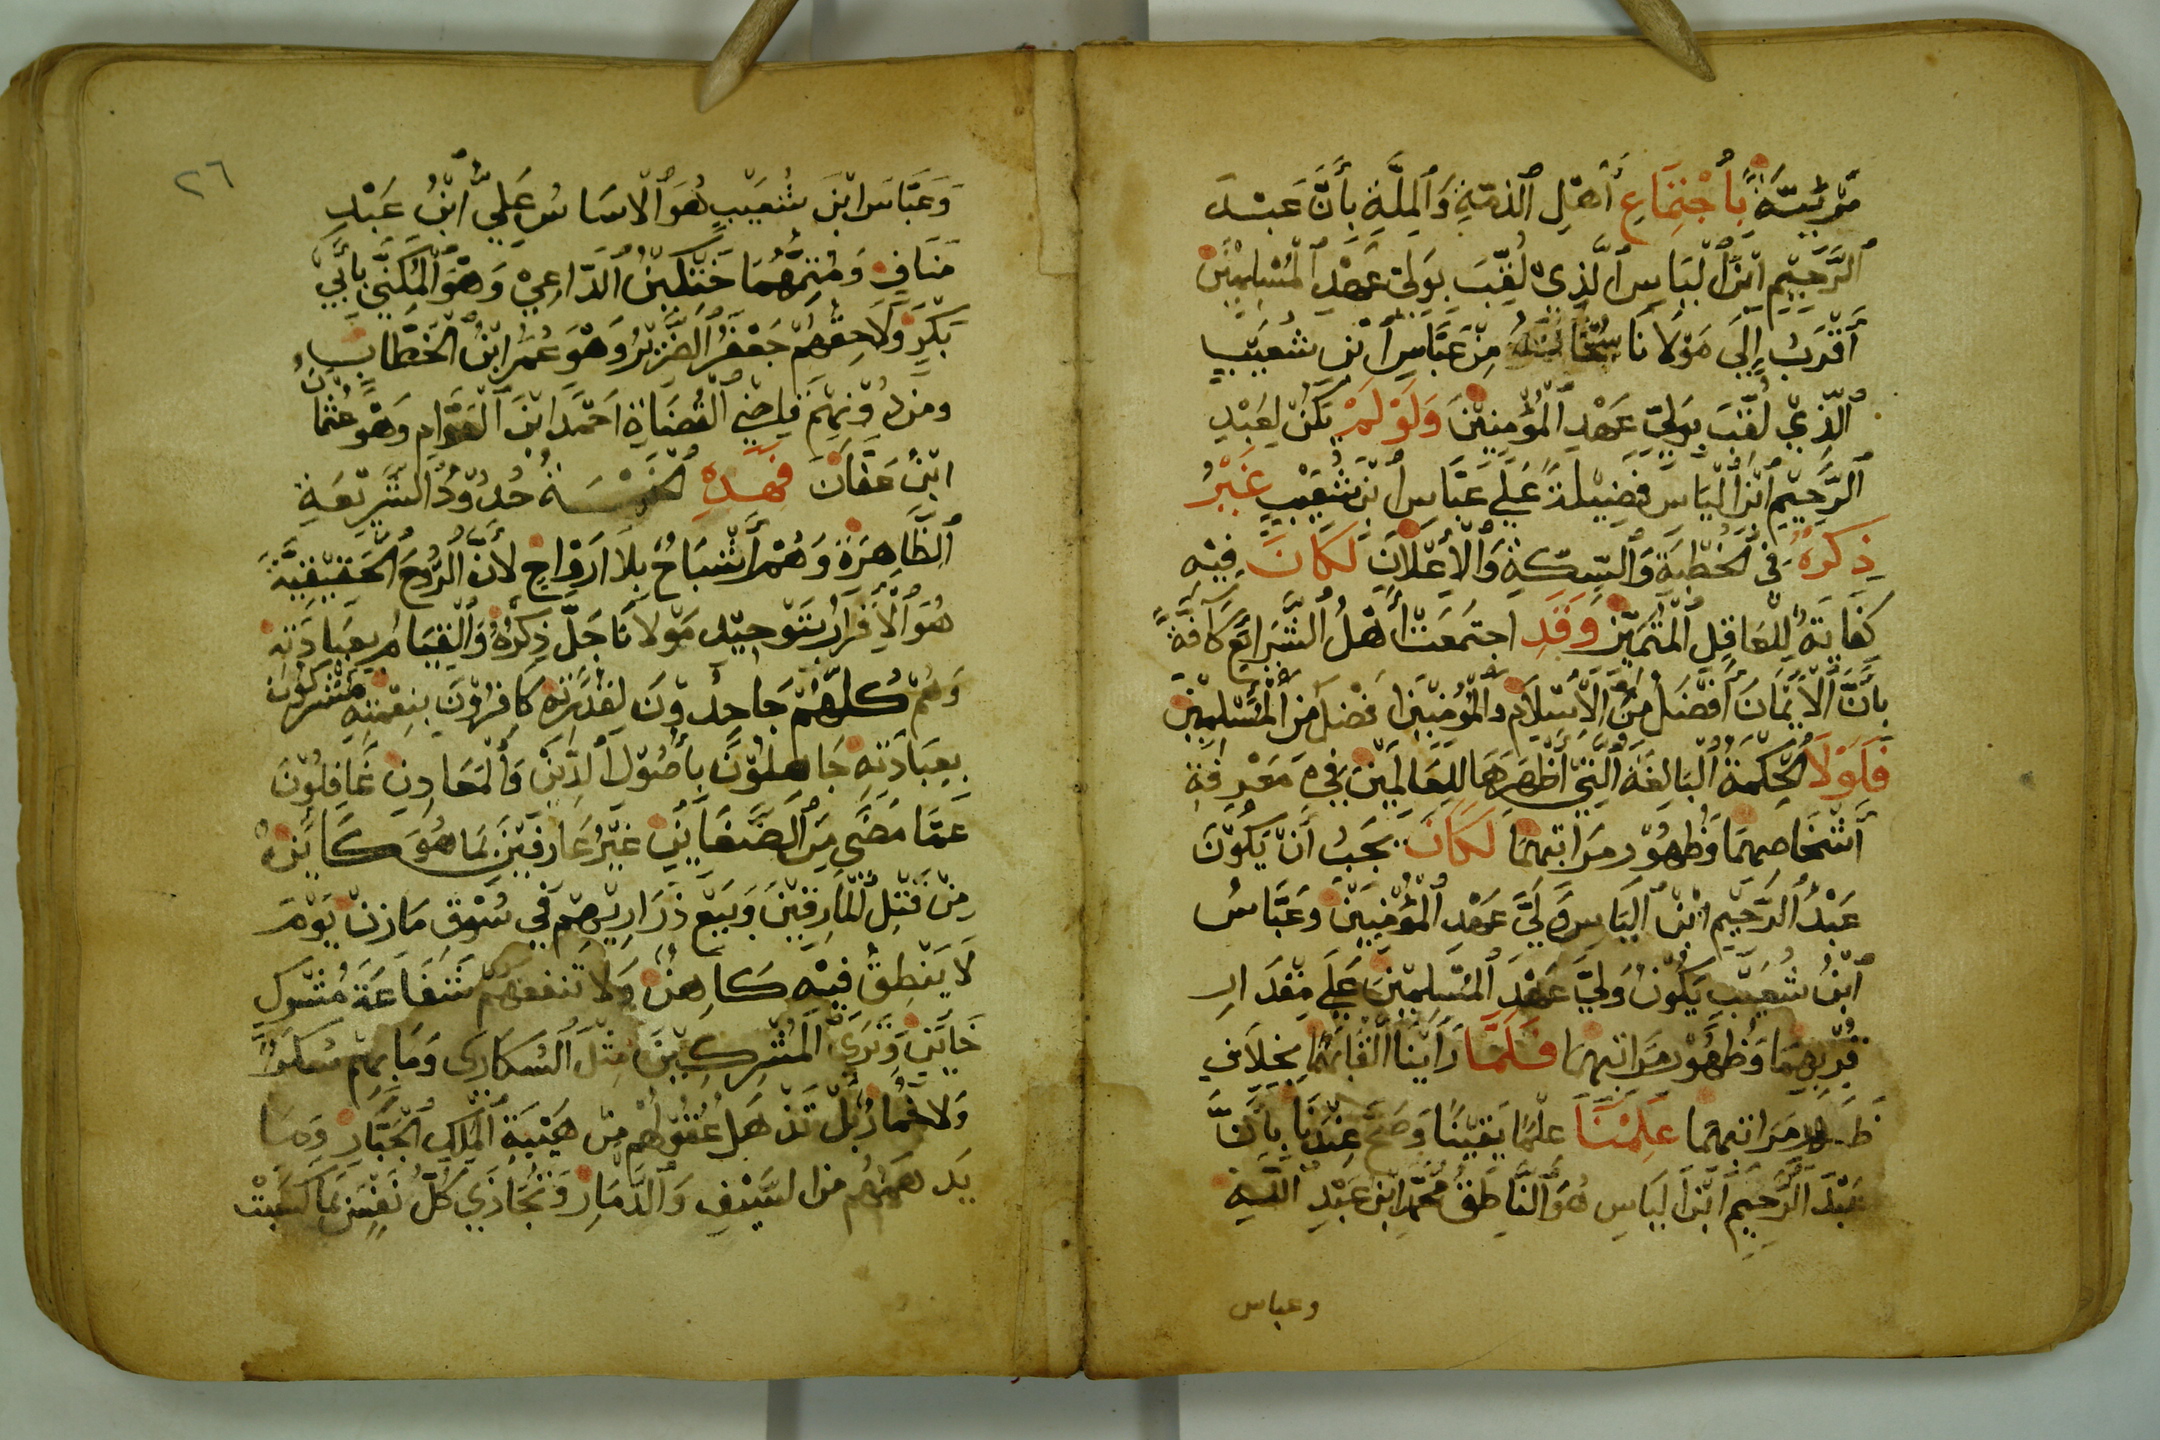 مرتبة باجتماع أهل الذمة والملة بأن عبد
الرحيم ابن الياس الذي لقب بولي عهد المسلمين
أقرب إلى مولانا سبحانه من عباس ابن شعيب
الذي لقب بولي عهد المؤمنين ولو لم يكن لعبد
الرحيم ابن الياس فضيلة على عباس ابن شعيب غير
ذكره في الخطبة والسكة والاعلان لكان فيه
كفاية للعاقل المتميز وقد اجتمعت أهل الشرايع كافة
بأن الايمان أفضل من الاسلام والمؤمنين افضل من المسلمين
فلولا الحكمة البالغة التي أظهرها للعالمين في معرفة
أشخاصهما وظهور مراتبهما لكان يجب أن يكون
عبد الرحيم ابن الياس ولي عهد المؤمنين وعباس
ابن شعيب يكون ولي عهد المسلمين على مقدار
قربهما وظهور مراتبهما فلما راينا القابهما بخلاف
ظهور مراتبهما علمنا علما يقينا وصح عندنا بان
عبد الرحيم ابن الياس هو الناطق محمد ابن عبد الله
وعباس
٢٦
وعباس ابن شعيب هو الاساس علي ابن عبد
مناف ومتمهما ختكين الداعي وهو المكنى بابي
بكر ولاحقهم جعفر الضرير وهو عمر ابن الخطاب
ومن دونهم قاضي القضاة احمد ابن العوام وهو عثمان
ابن عفان فهذه الخمسة حدود الشريعة
الظاهرة وهم أشباح بلا ارواح لأن الروح الحقيقية
هو الاقرار بتوحيد مولانا جل ذكره والقيام بعبادته
وهم كلهم جاحدون لقدرته كافرون بنعمته مشركون
بعبادته جاهلون بأصول الدين والمعادن غافلون
عما مضى من الضغاين غير عارفين بما هو كاين
من قتل المارقين وبيع ذراريهم في سوق مازن يوم
لا ينطق فيه كاهن ولا تنفعهم شفاعة مشول
خاين وترى المشركين مثل السكارى وما بهم سكرا
ولا خمار بل تذهل عقولهم من هيبة الملك الجبار وما
يدهمهم من السيف والدمار وتجازي كل نفس بما كسبت